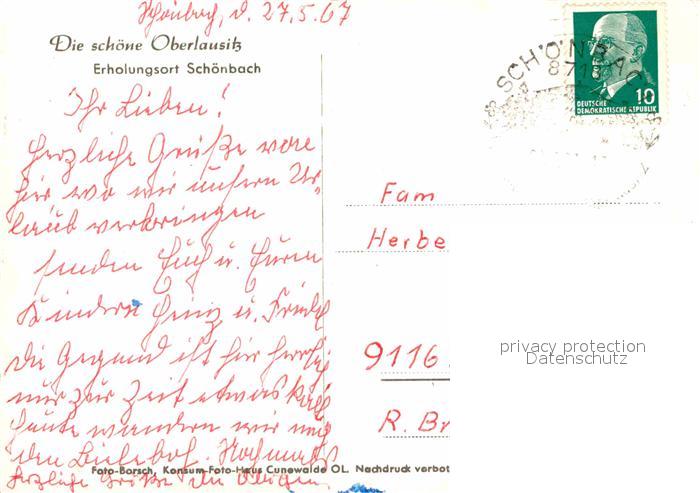 Schönbach, d. 27.5.67
Die schöne Oberlausitz
Erholungsort Schönbach
Ihr Lieben!
Herzliche Grüße von
hier wo wir unsern Ur-
laub verbringen
senden Euch u. Euren
Kindern Heinz u.
Die Gegend ist hier herrlich
nur zur Zeit etwas kalt
heute wandern wir nach
den Bieleboh. Nochmals
herzliche Grüße die Obigen
Foto-Borsch, Konsum-Foto-Haus Cunewalde OL. Nachdruck verbot
SCHÖNBAC
871
DEUTSCHE
DEMOKRATISCHE REPUBLIK
10
Fam
Herbe
9116
R. Br
privacy protection
Datenschutz